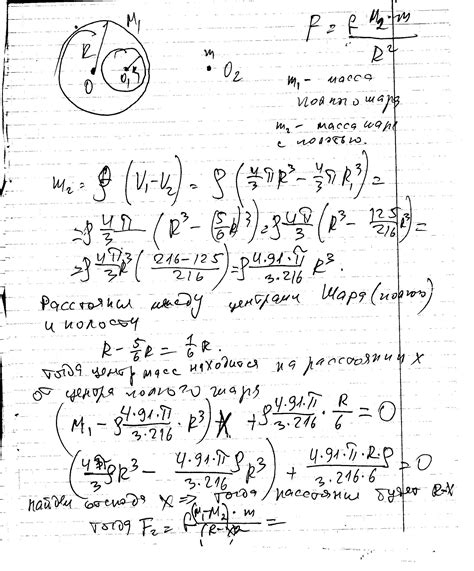 M₁
R
O
O₁
m
O₂
F = f M₂·m / R²
m₁ – масса
полного шара
m₂ – масса шара
с полостью.
m₂ = ρ (V₁ – V₂) = ρ (4/3 πR³ – 4/3 πR₁³) =
= ρ 4π/3 (R³ – (5/6 R)³) = ρ 4π/3 (R³ – 125/216 R³) =
= ρ 4π/3 R³ (216–125 / 216) = ρ 4·91·π / 3·216 R³.
Расстояние между центрами шара (полного)
и полости
R – 5/6 R = 1/6 R.
тогда центр масс находится на расстоянии x
от центра полного шара
(M₁ – ρ 4·91·π / 3·216 · R³) X + ρ 4·91·π / 3·216 · R/6 = 0
(4π/3 ρR³ – 4·91·π / 3·216 ρ R³) + 4·91·π·R·ρ / 3·216·6 = 0
найдем отсюда x ⇒ тогда расстояние будет R–X
тогда F₂ = f (M₁–M₂)·m / (R–X)² =